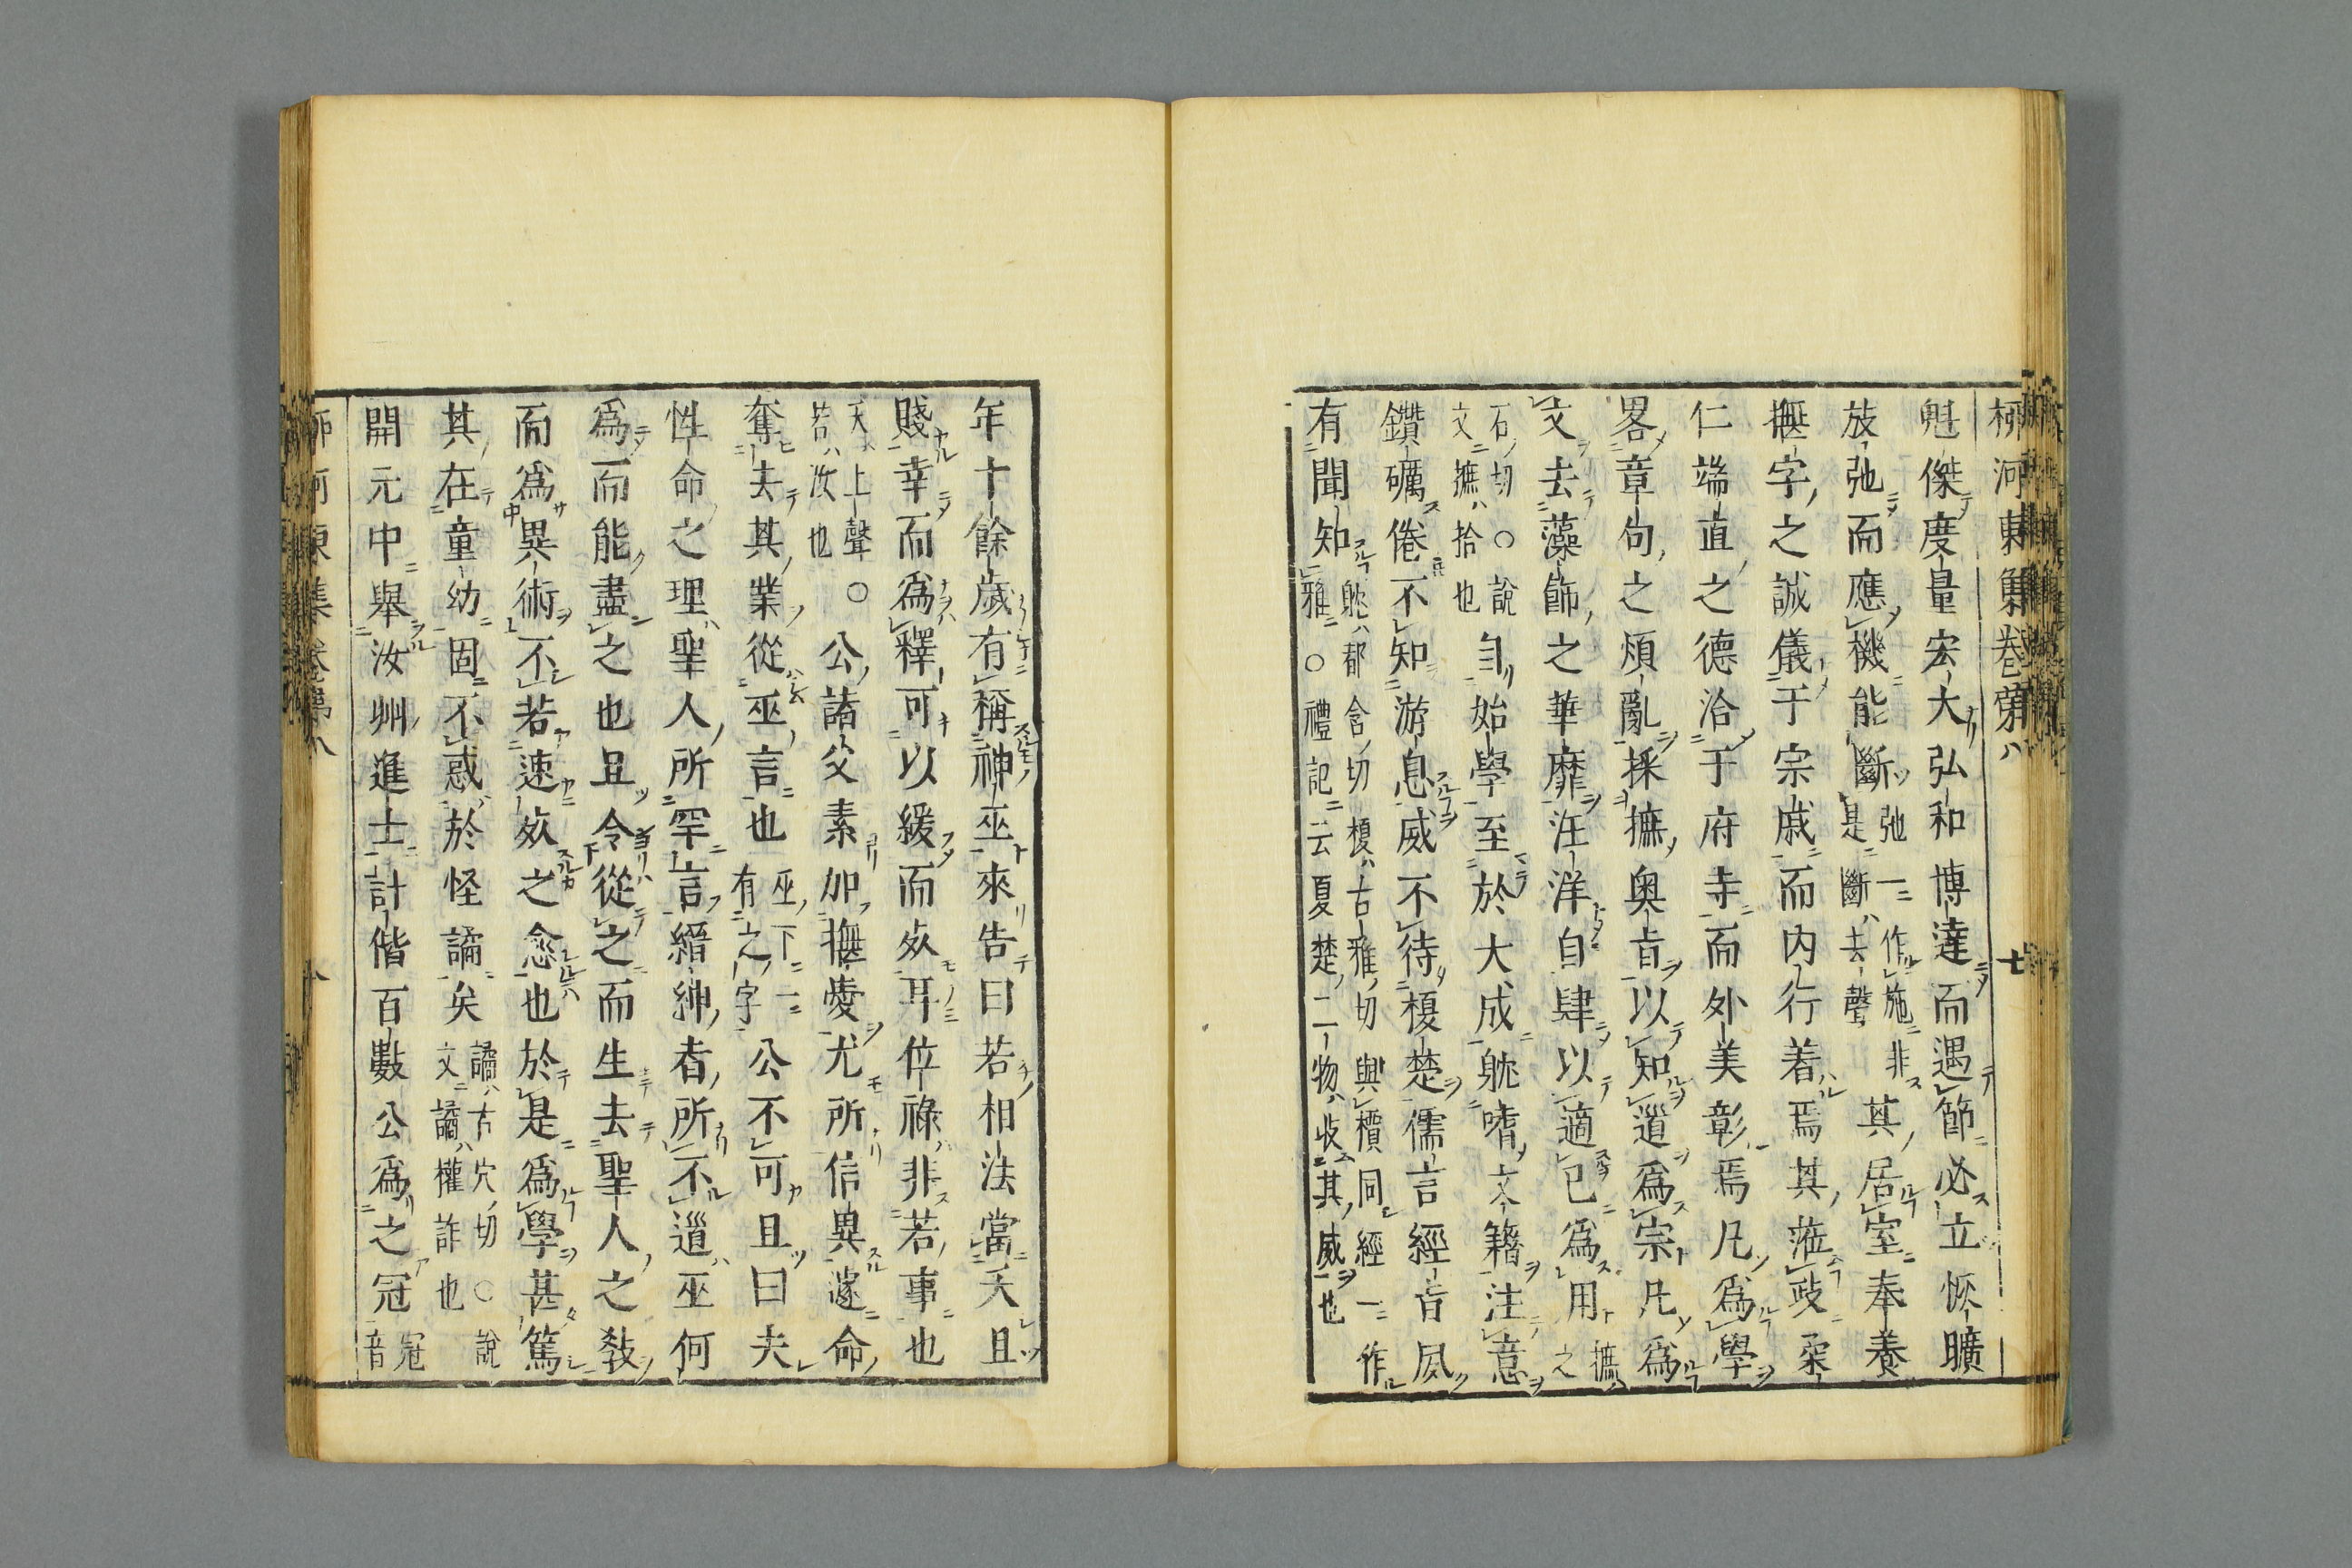 柳河東集卷第八
七
魁傑度量宏大弘和博達而遇節必立恢曠
放弛而應機能斷弛一作施非是斷去聲其居室奉養
撫字之誠儀于宗戚而内行着焉其莅政柔
仁端直之德洽于府寺而外美彰焉凡爲學
畧章句之煩亂採摭奥旨以知道爲宗凡爲
文去藻飾之華靡汪洋自肆以適己爲用摭之
石切○說文摭拾也自始學至於大成躭嗜文籍注意
鑽礪倦不知游息威不待榎楚儒言經旨夙
有聞知躭都含切榎古雅切與檟同經一作雅○禮記云夏楚二物收其威也
年十餘歲有稱神巫來告曰若相法當夭且
賤幸而爲釋可以緩而死耳位祿非若事也
夭上聲若汝也○公諸父素加撫愛尤所信異遽命
奪去其業從巫言也巫下一有之字公不可且曰夫
性命之理聖人所罕言縉紳者所不道巫何
爲而能盡之也且令從之而生去聖人之教
而爲異術不若速死之愈也於是爲學甚篤
其在童幼固不惑於怪譎矣譎古穴切○說文譎權詐也
開元中舉汝州進士計偕百數公爲之冠冠音
柳河東集卷第八
八